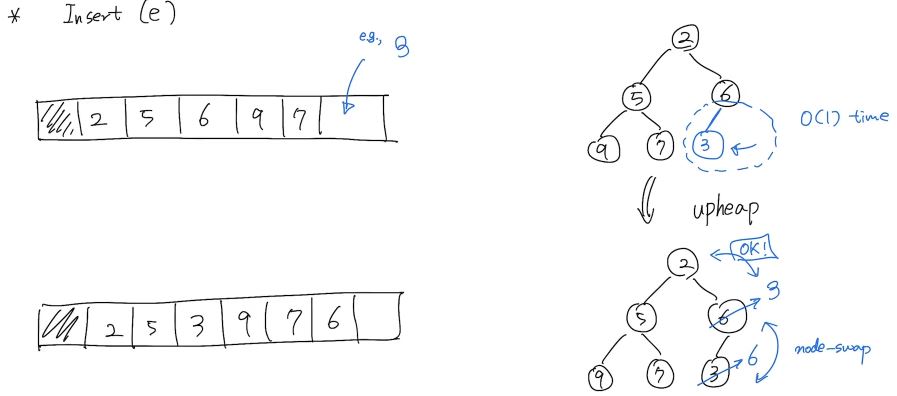 * Insert (e)
e.g., 3
2 5 6 9 7
2
5 6
9 7 3
O(1)-time
upheap
2 5 3 9 7 6
OK!
2
5 6 3
9 7 3 6
node-swap